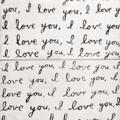 you, I love you, I love
I love you, I love you,
you, I love you, I love
I love you, I love you,
I love you, I love you
love you, I love you, I love
you, I love you, I love you
I love you, I love you
love you, I love you